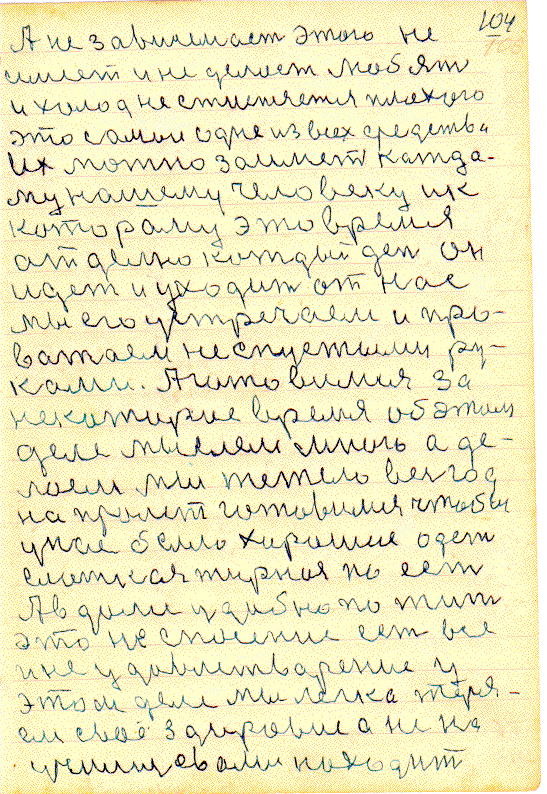 104
А не зависемает этого не
имеет и не делает любят
и холод не стистяется плохого
это самои одне из всех средств и
Их можно заимет кажда-
му нашему человеку и к
котораму это время
атделно кождый ден он
идет и уходит от нас
мы его устречаем и про-
важаем не спустыми ру-
ками. А готовимся за
некоторые время об этом
деле мыслем много а де-
лаем мы тежело вез год
на пролет готовимся чтобы
унас было харошие одет
слаткая жирная по ест
А в доме удобно по жит
это не споение ест все
и не удовитварение у
этом деле мы легка теря-
ем своё здаровие а не на
находит